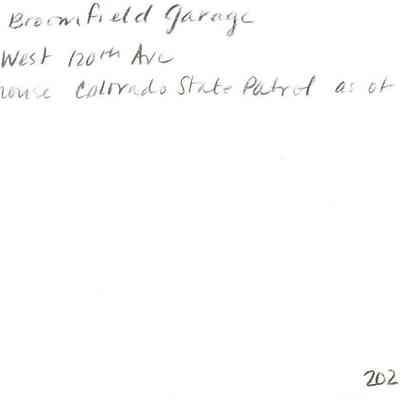 Broomfield Garage
West 120th Ave
house Colorado State Patrol as of
202